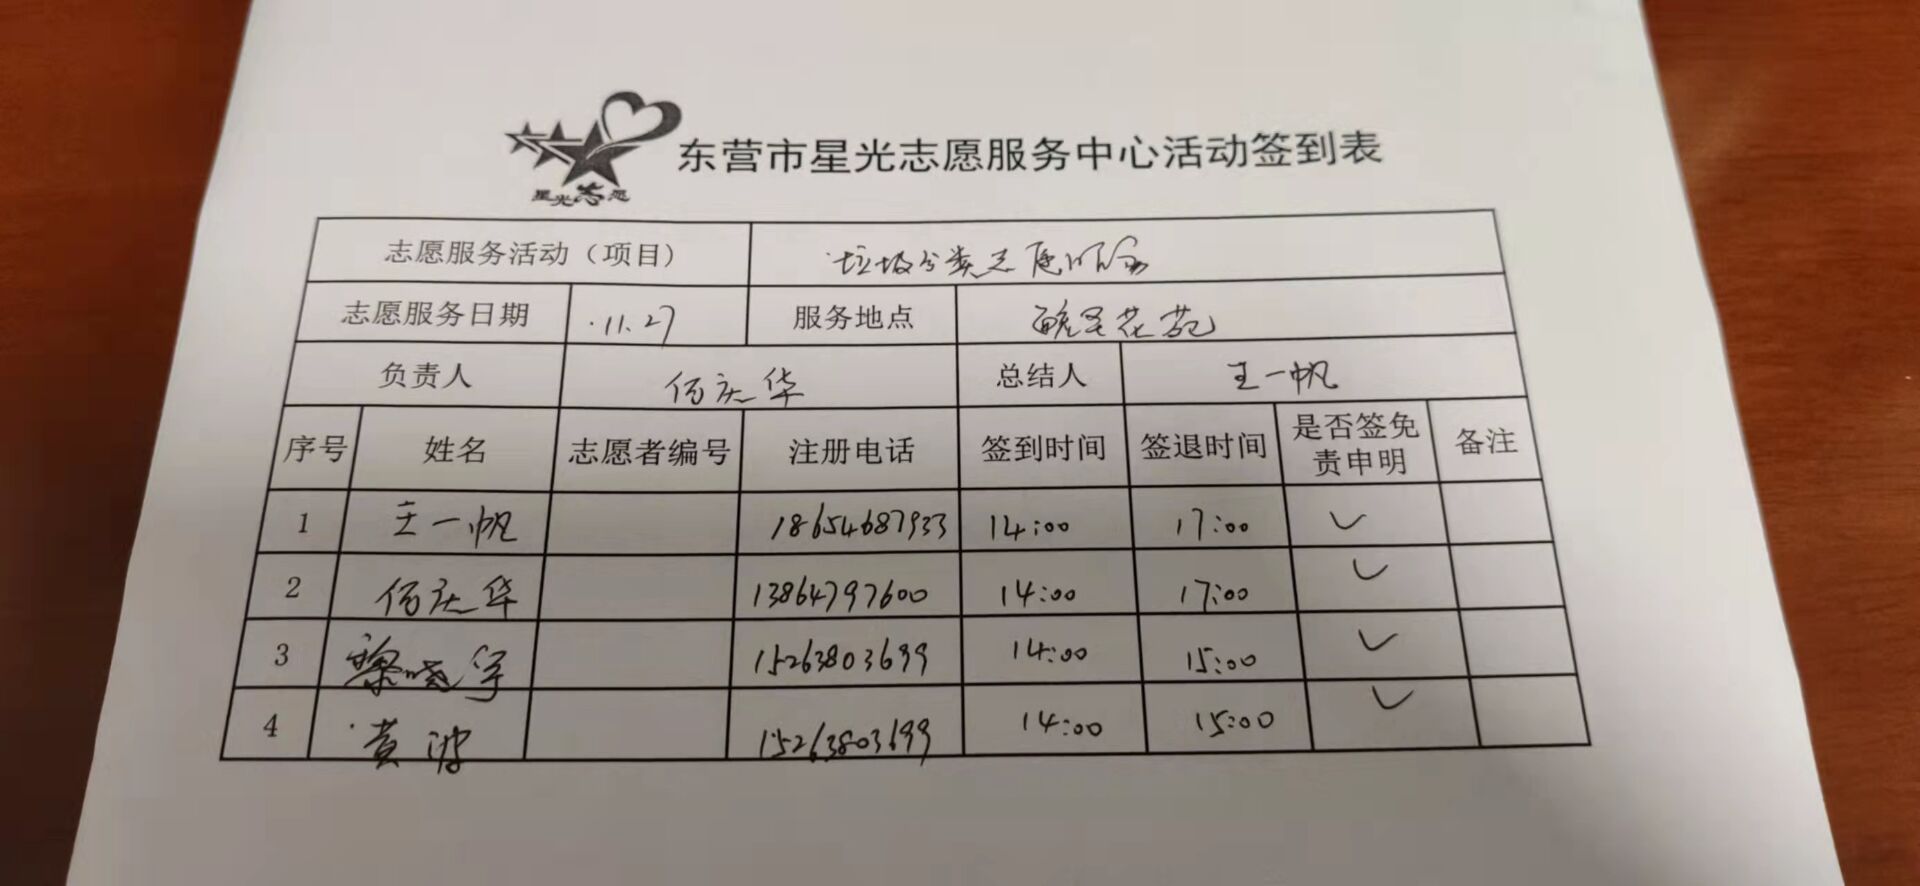 星光志愿
东营市星光志愿服务中心活动签到表
志愿服务活动（项目） 垃圾分类志愿服务
志愿服务日期 11.27 服务地点 花苑
负责人 庆华 总结人 王一帆
序号 姓名 志愿者编号 注册电话 签到时间 签退时间 是否签免责申明 备注
1 王一帆 18654687933 14:00 17:00 ✓
2 庆华 13864797600 14:00 17:00 ✓
3 黎晓宇 15263803699 14:00 15:00 ✓
4 黄波 15263803699 14:00 15:00 ✓